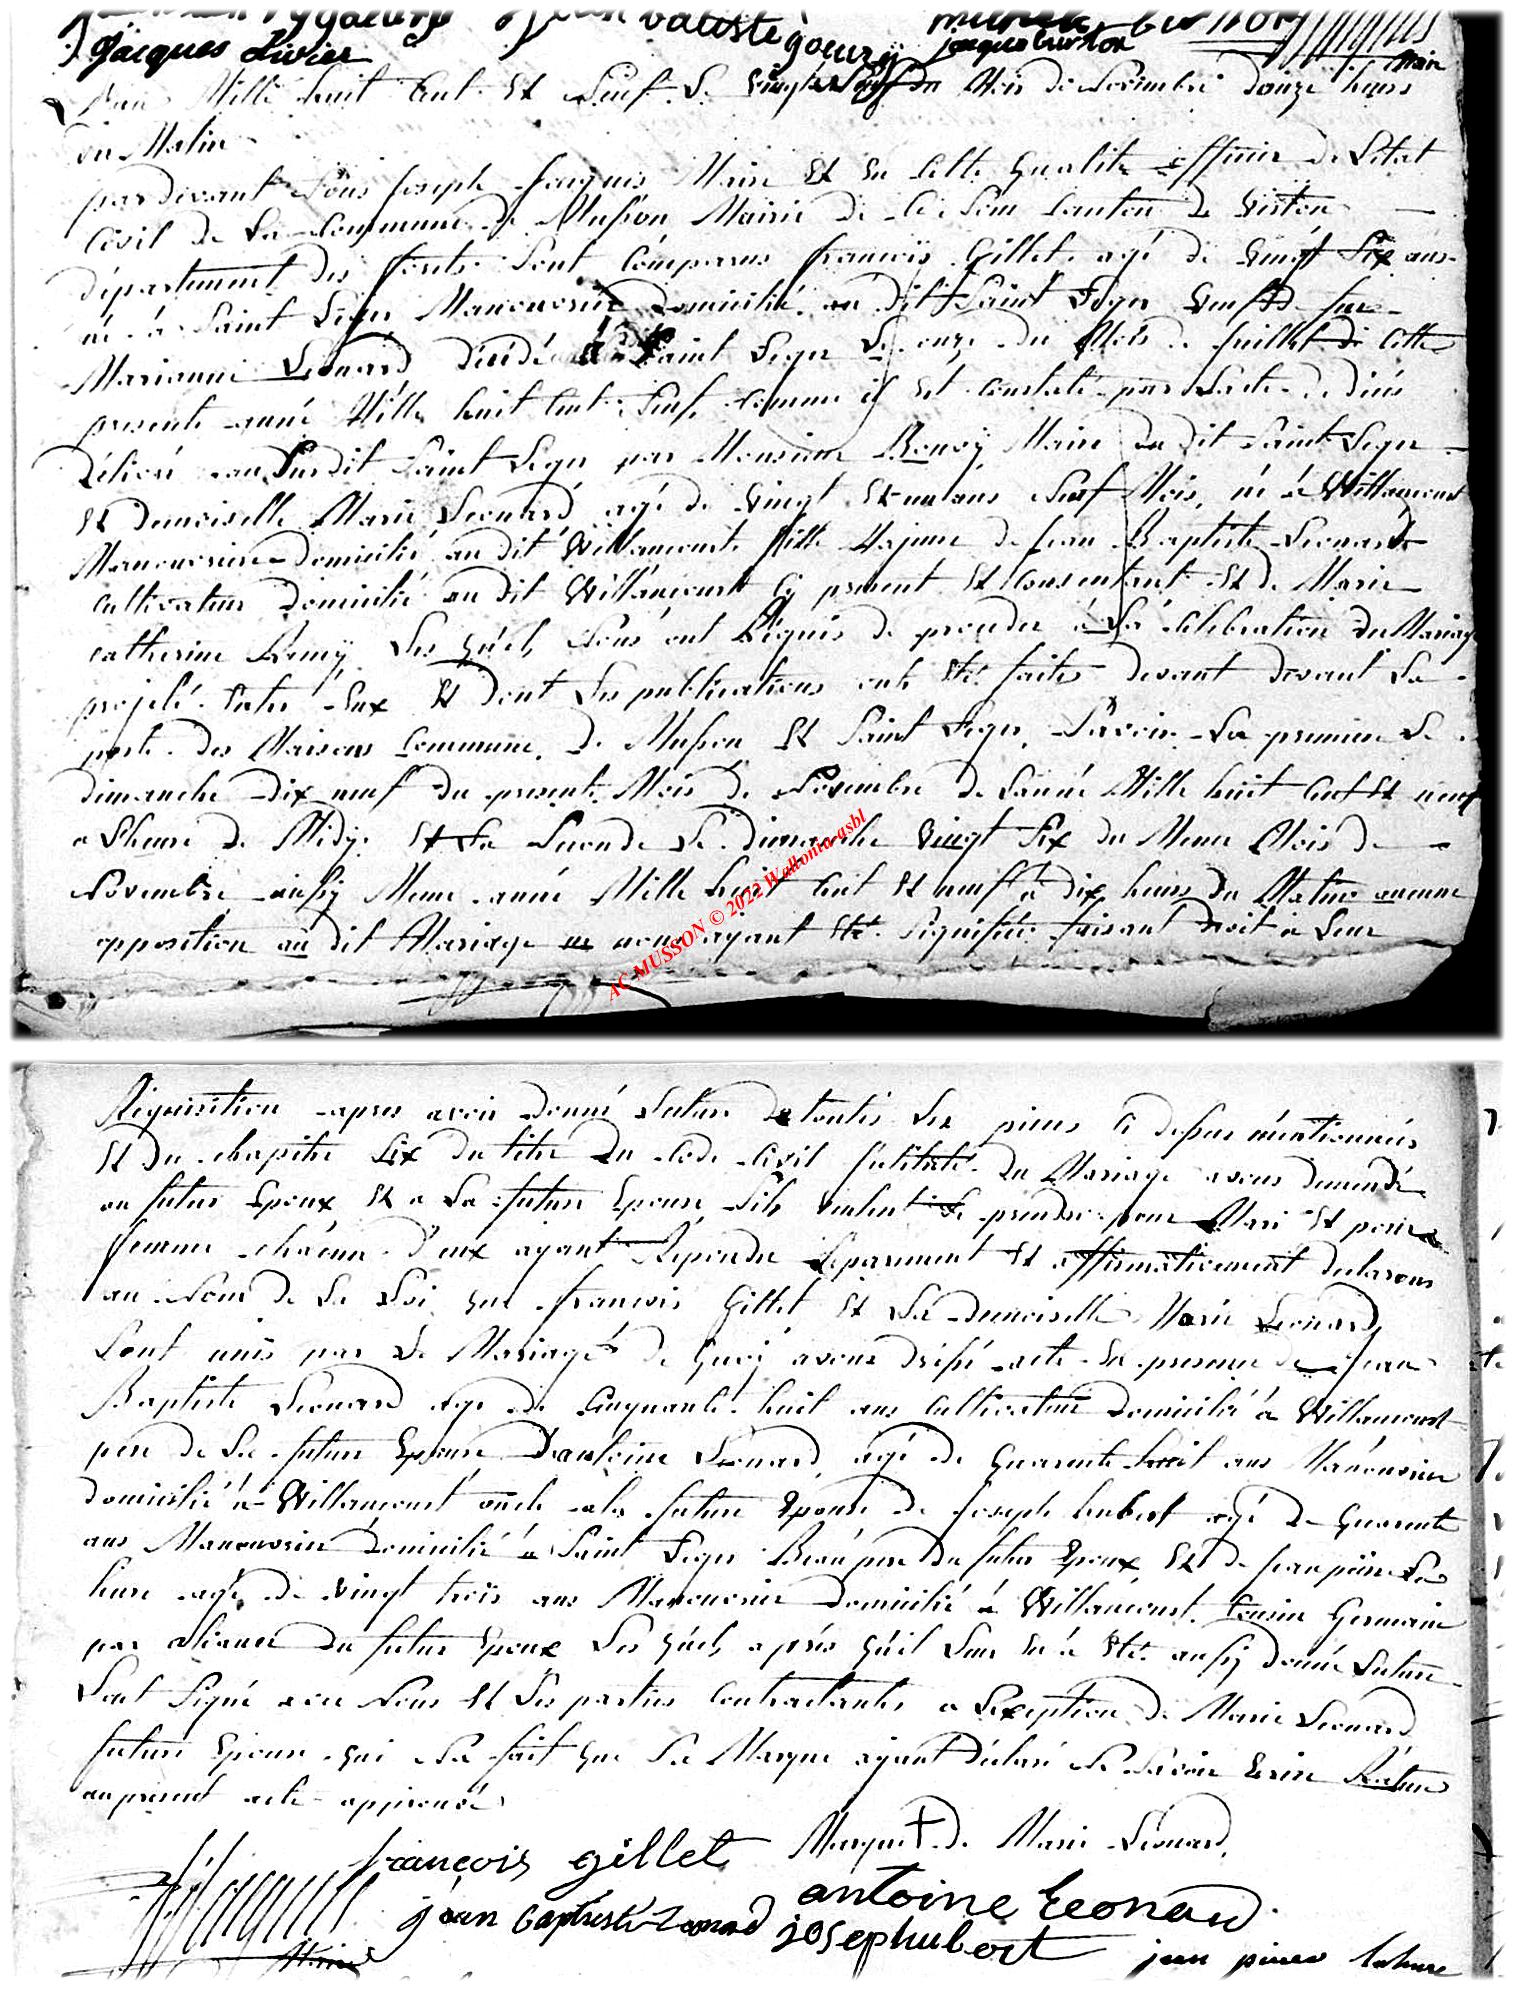 jean baptiste goury
jacques livier
jacques
Maire
L'an Mille huit Cent Et Neuf Le vingt Neuf du Mois de Novembre douze heures
du Matin
pardevant Nous Joseph Jacques Maire Et En Cette qualité officier de L'Etat
Civil de La Commune de Musson Mairie de Ce Nom Canton de Virton
département des forets Sont Comparus françois Gillet agé de vingt Six ans
né à Saint Leger Manouvrier Domicilié au dit Saint Leger veuf de feue
Marianne Leonard décédée à Saint Leger Le onze du Mois de Juillet de Cette
presente année Mille huit Cent Neuf Comme il Est Constaté par L'acte de décés
Délivré au Sus dit Saint Leger par Monsieur Maire du dit Saint Leger
Et demoiselle Marie Leonard agé de vingt Et un ans Neuf Mois, né à Willancourt
Manouvriere Domicilié au dit Willancourt fille Majeure de Jean Baptiste Leonard
Cultivateur Domicilié au dit Willancourt Cy present Et Consentant Et de Marie
catherine Remÿ Les quels Nous ont Réquis de proceder à La Célebration du Mariage
projeté Entre Eux Et dont Les publications ont Eté faites devant devant La
porte des Maisons Commune de Musson Et Saint Leger, Savoir La premiere Le
dimanche Dix neuf du present Mois de Novembre de L'année Mille huit Cent Et neuf
a L'heure de Midÿ Et La Seconde Le dimanche vingt Six du Meme Mois de
Novembre aussÿ Meme année Mille huit Cent Et neuf à dix heures du Matin aucune
opposition au dit Mariage ne nous ayant Eté Signifiée faisant Droit à Leur
AC MUSSON © 2022 Wallonia-asbl
Réquisition apres avoir Donné Lecture de toutes Les pieces Ci dessus mentionnées
Et du chapitre Six du titre Du Code Civil Intitulé du Mariage avons demandé
au futur Epoux Et a La future Epouse S'ils veulent Se prendre pour Mari Et pour
femme chacun d'eux ayant Répondu Séparement Et affirmativement declarons
au Nom de La Loi que françois Gillet Et La demoiselle Marie Leonard
Sont unis par Le Mariage de quoÿ avons dressé acte En presence de Jean
Baptiste Leonard agé de Cinquante huit ans Cultivateur Domicilié à Willancourt
pere de La future Epouse D'antoine Leonard, agé de quarente huit ans Manouvrier
domicilié à Willancourt oncle a la future Epouse de Joseph hubert agé De quarente
ans Manouvrier domicilié à Saint Leger Beau pere du futur Epoux, Et de Jean pierre La
hure agé de vingt trois ans Manouvrier Domicilié à Willancourt Cousin Germain
par aliance du futur Epoux Les quels apres qu'il Leur En à Eté aussÿ donné Lecture
Sont Signé avec Nous Et Les parties Contractantes a L'exeption de Marie Leonard
future Epouse qui Na fait que Sa Marque ayant Déclaré Ne Savoir Ecrire
au present acte approuvée
françois gillet Marque + de Marie Léonard
Jacques Maire jean baptiste Leonard antoine Leonard
joseph hubert jean pierre lahure